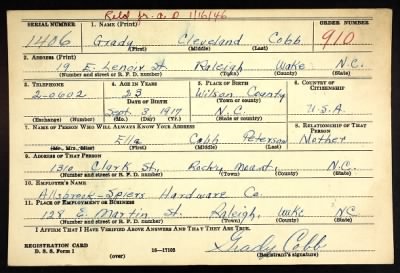 Reld fr. a. D 1/16/46
SERIAL NUMBER 1. NAME (Print) ORDER NUMBER
1406 Grady Cleveland Cobb 910
(First) (Middle) (Last)
2. ADDRESS (Print)
19 E. Lenoir St Raleigh Wake N.C.
(Number and street or R. F. D. number) (Town) (County) (State)
3. TELEPHONE 4. AGE IN YEARS 5. PLACE OF BIRTH 6. COUNTRY OF CITIZENSHIP
2-0602 23 Wilson County
DATE OF BIRTH (Town or county)
Sept. 3, 1917 N.C. U.S.A.
(Exchange) (Number) (Mo.) (Day) (Yr.) (State or country)
7. NAME OF PERSON WHO WILL ALWAYS KNOW YOUR ADDRESS 8. RELATIONSHIP OF THAT PERSON
Ella Cobb Peterson Mother
(Mr., Mrs., Miss) (First) (Middle) (Last)
9. ADDRESS OF THAT PERSON
1310 Clark St., Rocky Mount, N.C.
(Number and street or R. F. D. number) (Town) (County) (State)
10. EMPLOYER'S NAME
Allsbrook-Spiers Hardware Co
11. PLACE OF EMPLOYMENT OR BUSINESS
128 E. Martin St. Raleigh, Wake N.C.
(Number and street or R. F. D. number) (Town) (County) (State)
I AFFIRM THAT I HAVE VERIFIED ABOVE ANSWERS AND THAT THEY ARE TRUE.
REGISTRATION CARD
D. S. S. Form 1 16-17105 Grady Cobb
(over) (Registrant's signature)